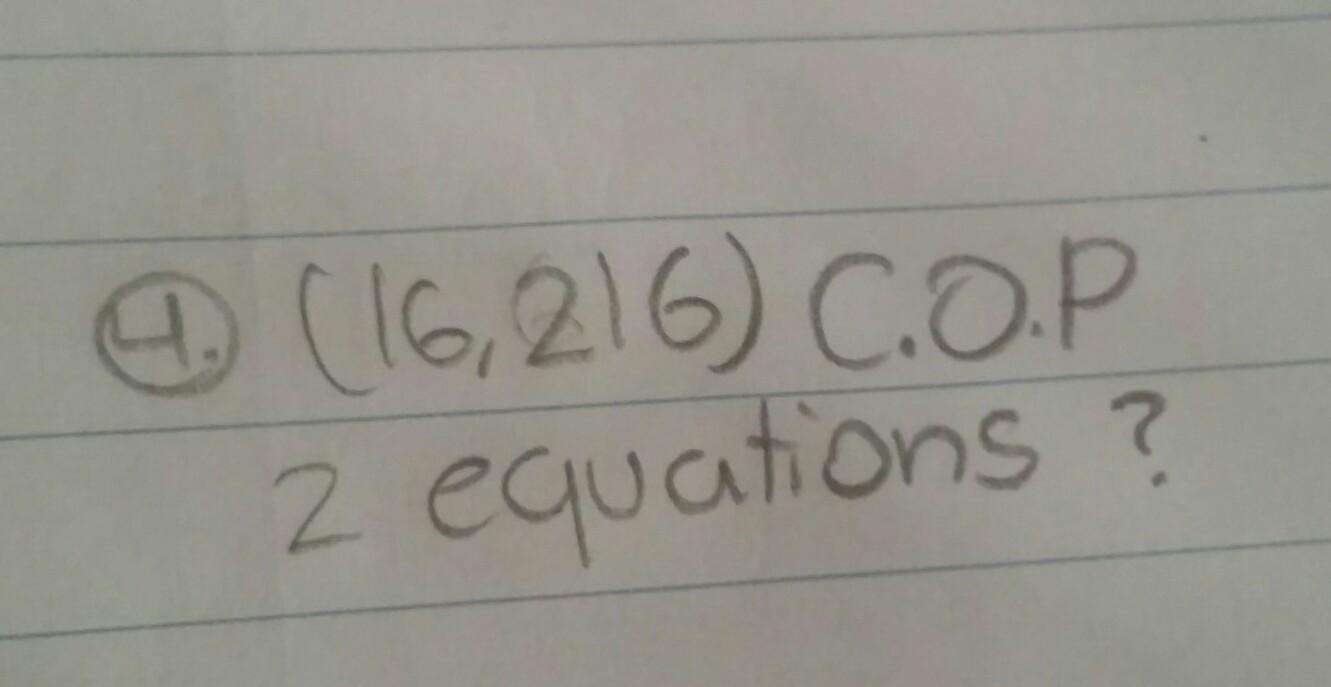 4. (16,216) C.O.P
2 equations ?